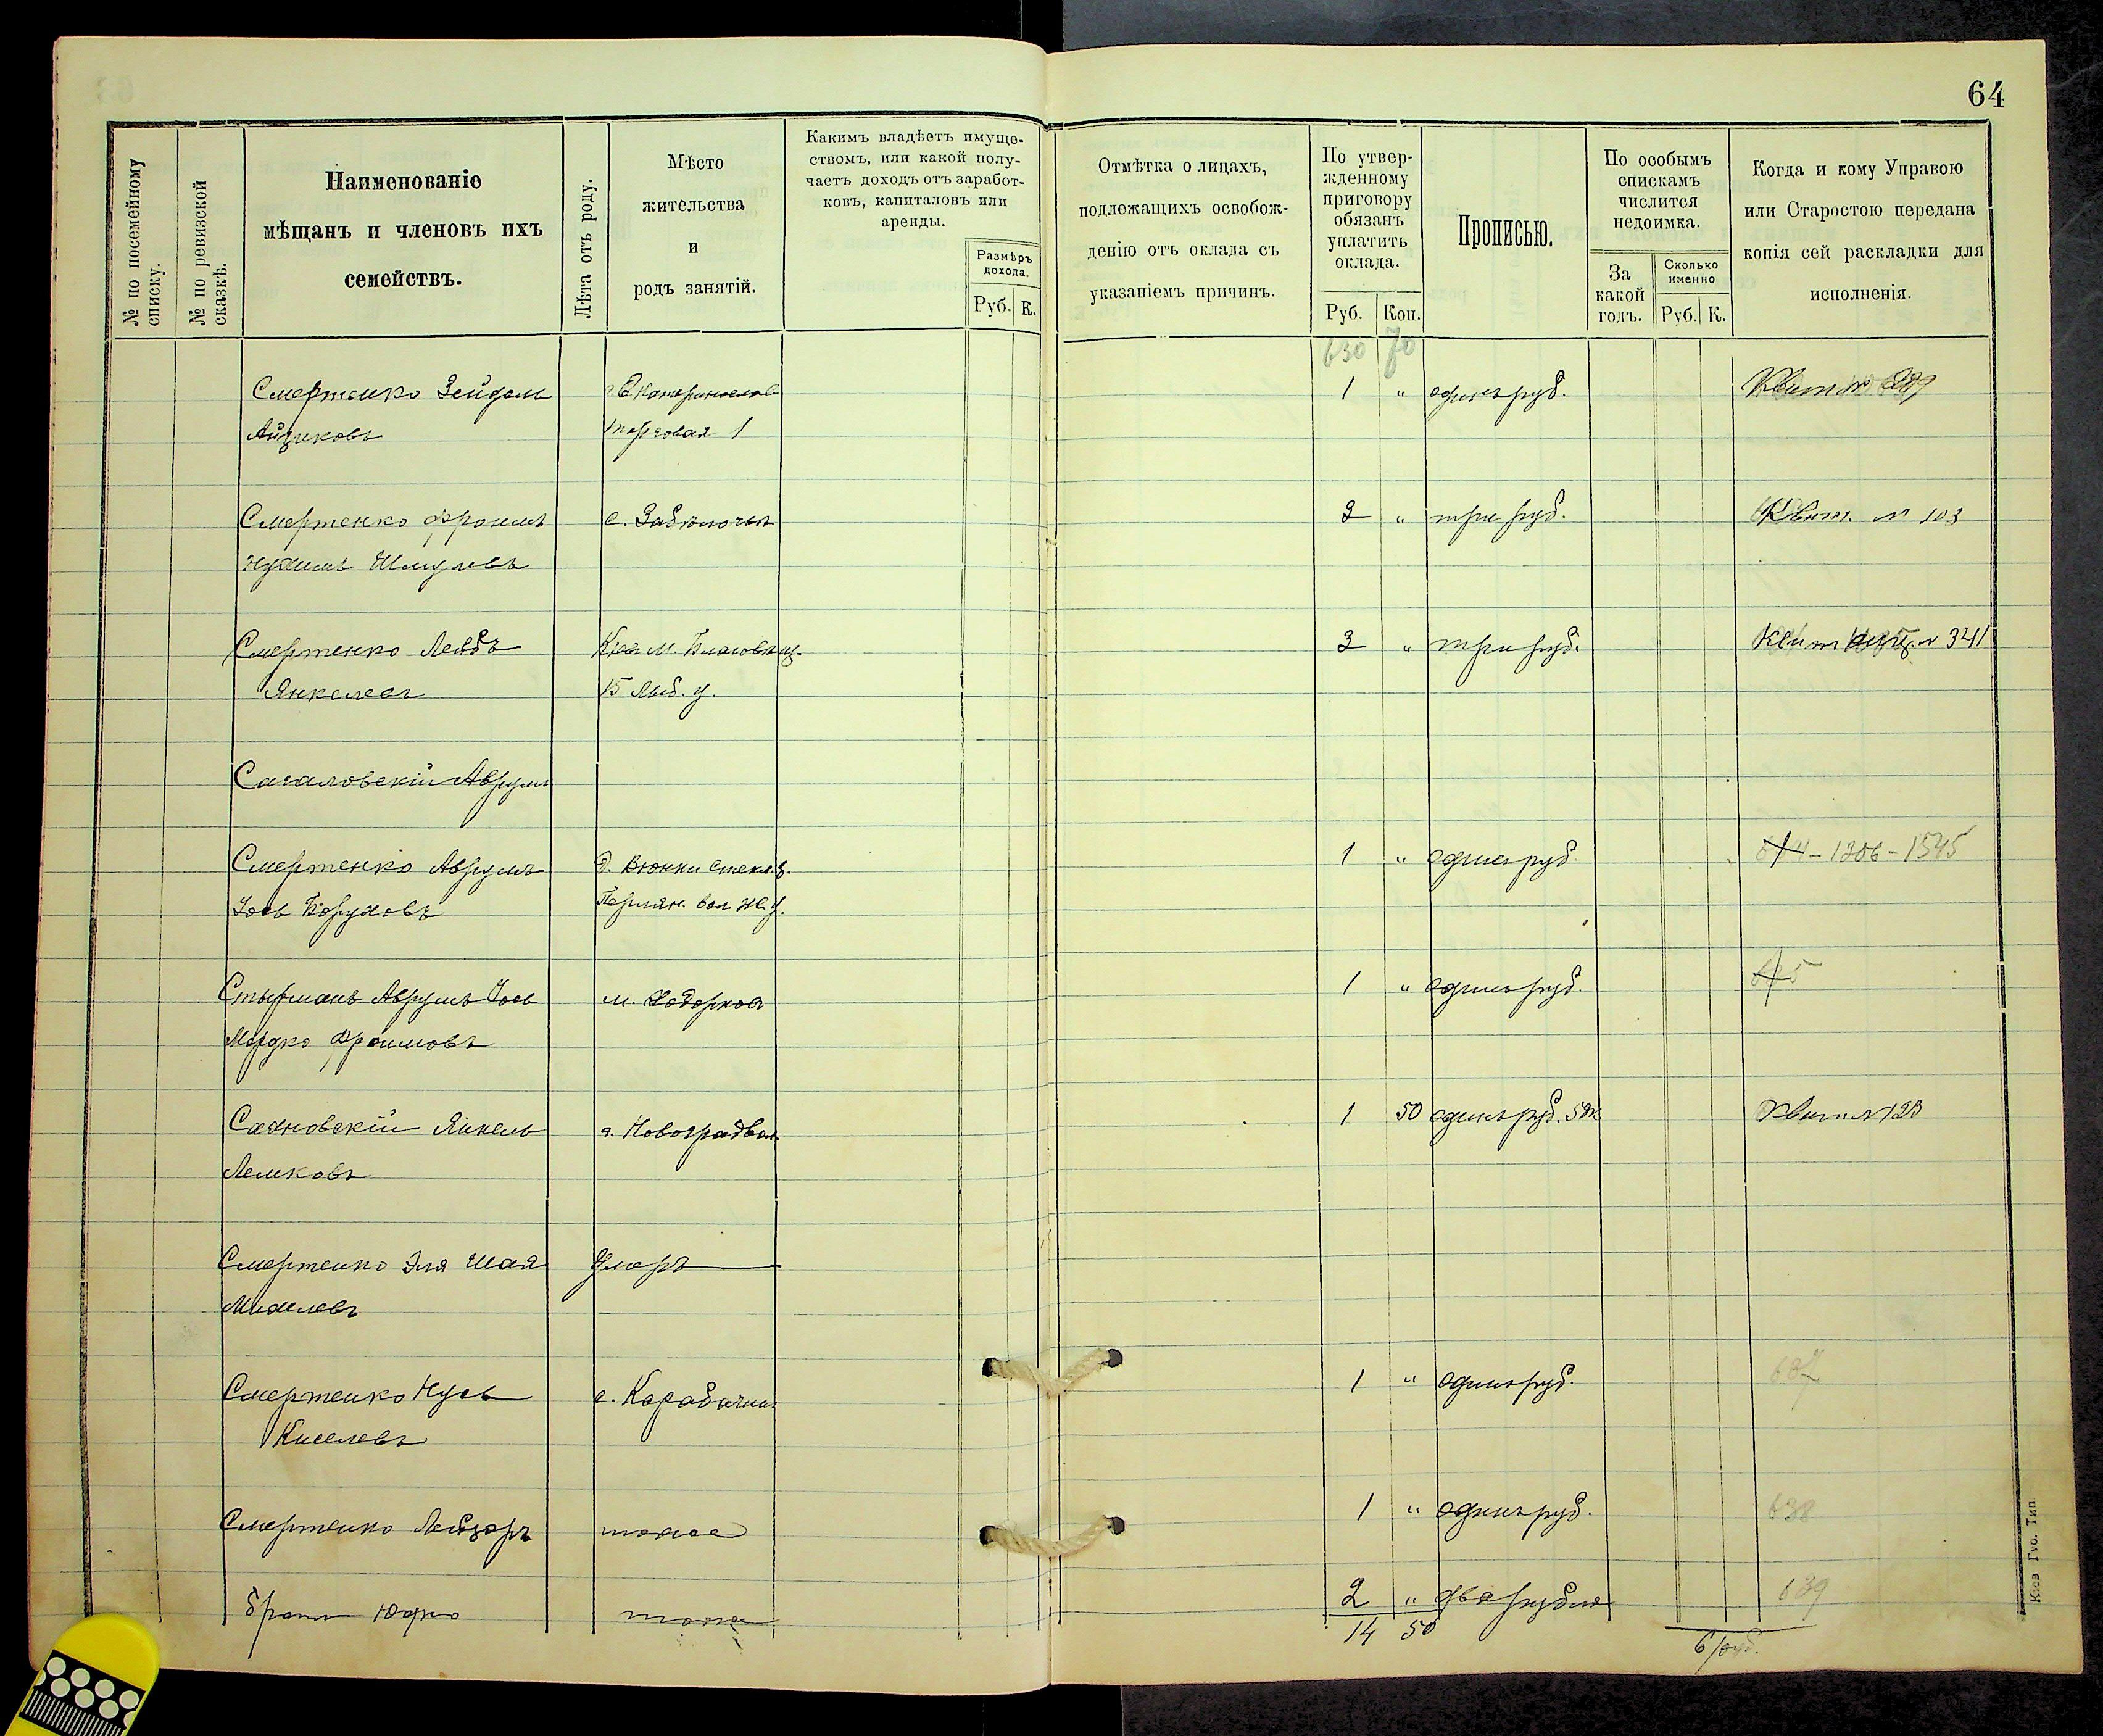 64
№ по посемейному списку.
№ по ревизской сказкѣ.
Наименованіе
мѣщанъ и членовъ ихъ
семействъ.
Лѣта отъ роду.
Мѣсто
жительства
и
родъ занятій.
Какимъ владѣетъ имуще-
ствомъ, или какой полу-
чаетъ доходъ отъ заработ-
ковъ, капиталовъ или
аренды.
Размѣръ
дохода.
Руб. К.
Отмѣтка о лицахъ,
подлежащихъ освобож-
денію отъ оклада съ
указаніемъ причинъ.
По утвер-
жденному
приговору
обязанъ
уплатить
оклада.
Руб. Коп.
Прописью.
По особымъ
спискамъ
числится
недоимка.
За
какой
годъ.
Сколько
именно
Руб. К.
Когда и кому Управою
или Старостою передана
копія сей раскладки для
исполненія.
630 70
Смертенко Зейдель г. Екатеринослав 1 " одинъ руб. Квит №
Айзиковъ Торговая 1
Смертенко Фроимъ с. Забѣлочье 3 " три руб. Квит. № 103
Нухимъ Шмулевъ
Смертенко Лейбъ Кіев М. Благовѣщ. 3 " три руб. Квитанц. № 341
Янкелевъ 15 Лыб. у.
Сагаловскій Аврумъ
Смертенко Аврумъ 1 " одинъ руб. 634-1306-1545
Іось Боруховъ вол. Ж. у.
Стырманъ Аврумъ Іось м. Ходорков 1 " одинъ руб. 635
Мордко Фроимовъ
Сахновскій Янкель г. Новоградвол. 1 50 одинъ руб. 50 к Квит № 123
Лемковъ
Смертенко Эля Шая Умеръ
Михелевъ
Смертенко Нусь с. Карабачин 1 " одинъ руб. 637
Киселевъ
Смертенко Лейзоръ тоже 1 " одинъ руб. 638
братъ Юдко тоже 2 " два рубля 639
14 50
6 руб.
Кіев Губ. Тип